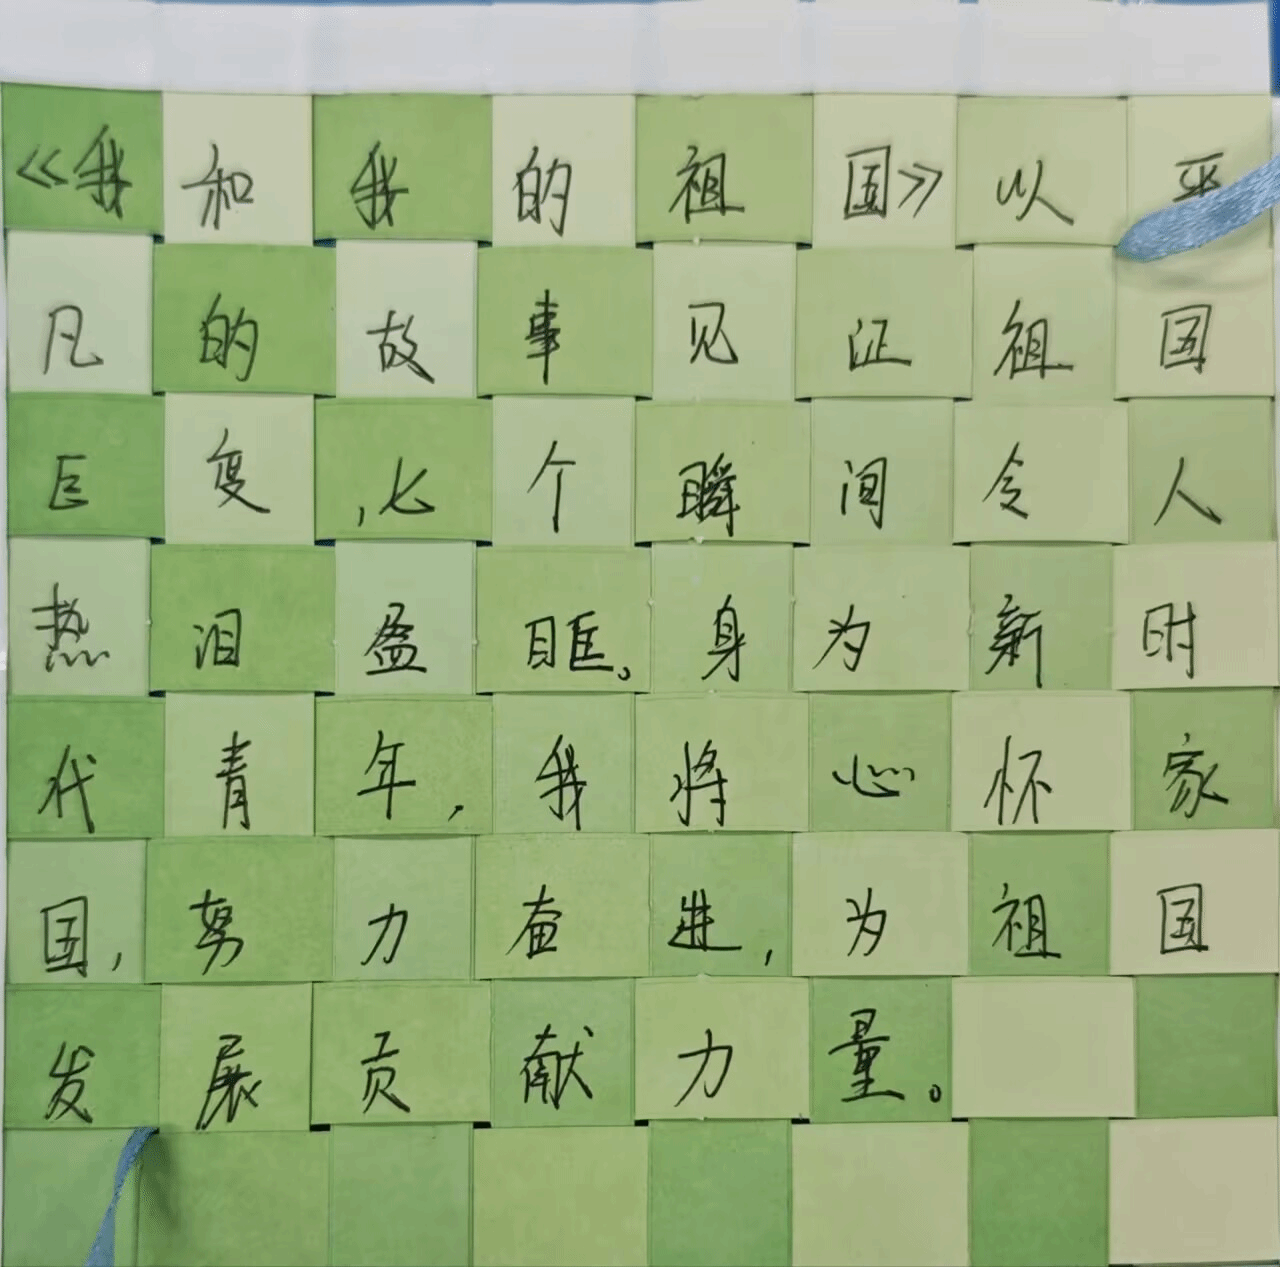 《我和我的祖国》以平
凡的故事见证祖国
巨变,七个瞬间令人
热泪盈眶。身为新时
代青年,我将心怀家
国,努力奋进,为祖国
发展贡献力量。